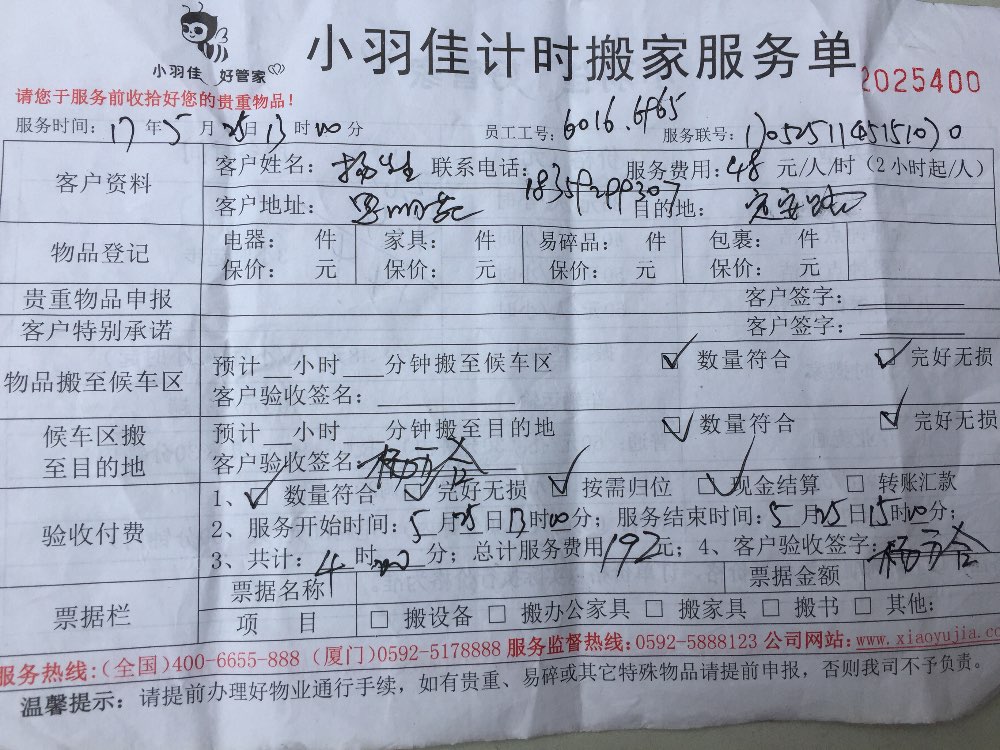 小羽佳 好管家
小羽佳计时搬家服务单
2025400
请您于服务前收拾好您的贵重物品！
服务时间：17年5月25日13时00分 员工工号：6016.6965 服务联号：
客户资料
客户姓名：杨生 联系电话：18359299307 服务费用：48元/人/时（2小时起/人）
客户地址：思明 目的地：
物品登记
电器： 件 家具： 件 易碎品： 件 包裹： 件
保价： 元 保价： 元 保价： 元 保价： 元
贵重物品申报 客户签字：
客户特别承诺 客户签字：
物品搬至候车区
预计__小时___分钟搬至候车区 ☑ 数量符合 ☑ 完好无损
客户验收签名：
候车区搬至目的地
预计__小时___分钟搬至目的地 ☑ 数量符合 ☑ 完好无损
客户验收签名：
验收付费
1、☑ 数量符合 ☑ 完好无损 ☑ 按需归位 ☑ 现金结算 □ 转账汇款
2、服务开始时间：5月25日13时00分；服务结束时间：5月25日15时00分；
3、共计：4时00分；总计服务费用192元；4、客户验收签字：
票据栏
票据名称 票据金额
项 目 □ 搬设备 □ 搬办公家具 □ 搬家具 □ 搬书 □ 其他：
服务热线：(全国)400-6655-888 (厦门)0592-5178888 服务监督热线：0592-5888123 公司网站：www.xiaoyujia.co
温馨提示：请提前办理好物业通行手续，如有贵重、易碎或其它特殊物品请提前申报，否则我司不予负责。